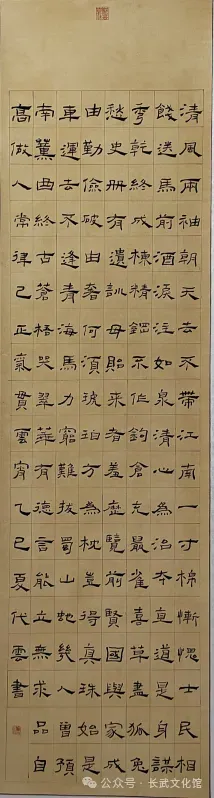 清風兩袖朝天去不帶江南一寸棉慚愧士民相
餞送馬前酒淚注如泉清心為治本直道是身謀
秀乾終成棟精鋼不作鉤倉充鼠雀喜草盡狐兔
愁史冊有遺訓毋貽來者羞歷覽前賢國與家成
由勤儉破由奢何須琥珀方為枕豈得真珠始是
車運去不逢青海馬力窮難拔蜀山蛇幾人曾預
南薰曲終古蒼梧哭翠華有德言能立無求品自
高做人常律己正氣貫雲宵乙巳夏代雲書
公众号·长武文化馆